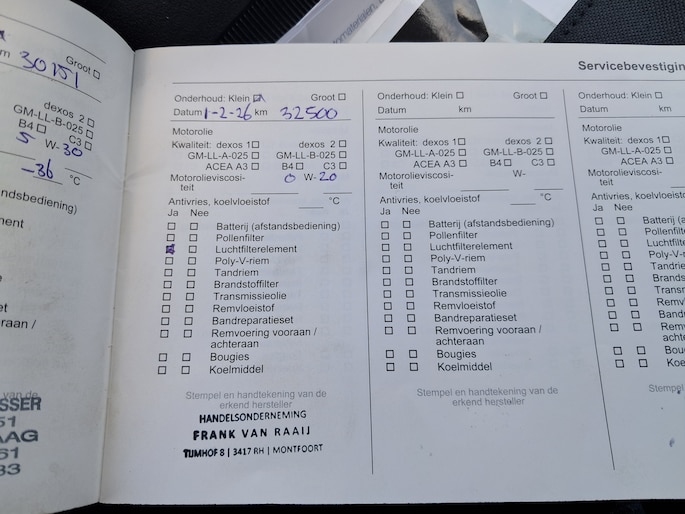 Servicebevestigin
m 30151
Groot
dexos 2
GM-LL-B-025
B4 C3
5 W-30
-36 °C
andsbediening)
ment
et
raan /
van de
SSER
51
AAG
61
33
Onderhoud: Klein Groot
Datum 1-2-26 km 32500
Motorolie
Kwaliteit: dexos 1 dexos 2
GM-LL-A-025 GM-LL-B-025
ACEA A3 B4 C3
Motorolieviscosi- 0 W-20
teit
Antivries, koelvloeistof °C
Ja Nee
Batterij (afstandsbediening)
Pollenfilter
Luchtfilterelement
Poly-V-riem
Tandriem
Brandstoffilter
Transmissieolie
Remvloeistof
Bandreparatieset
Remvoering vooraan /
achteraan
Bougies
Koelmiddel
Stempel en handtekening van de
erkend hersteller
HANDELSONDERNEMING
FRANK VAN RAAIJ
TUMHOF 8 | 3417 RH | MONTFOORT
Onderhoud: Klein Groot
Datum km
Motorolie
Kwaliteit: dexos 1 dexos 2
GM-LL-A-025 GM-LL-B-025
ACEA A3 B4 C3
Motorolieviscosi- W-
teit
Antivries, koelvloeistof °C
Ja Nee
Batterij (afstandsbediening)
Pollenfilter
Luchtfilterelement
Poly-V-riem
Tandriem
Brandstoffilter
Transmissieolie
Remvloeistof
Bandreparatieset
Remvoering vooraan /
achteraan
Bougies
Koelmiddel
Stempel en handtekening van de
erkend hersteller
Onderhoud: Klein
Datum
Motorolie
Kwaliteit: dexos 1
GM-LL-A-025
ACEA A3
Motorolieviscosi-
teit
Antivries, koelvloeistof
Ja Nee
Batterij (a
Pollenfilte
Luchtfilte
Poly-V-r
Tandrie
Brands
Transm
Remvl
Band
Remv
acht
Bou
Koe
Stempel